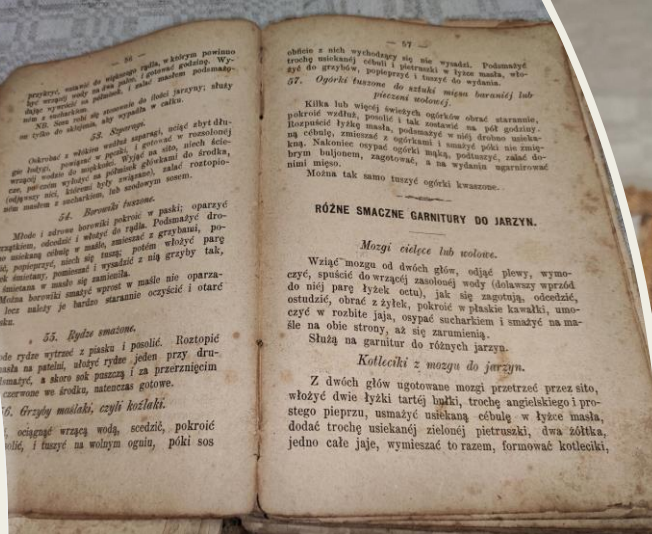 — 56 —
przykryć, wstawić do większego rądla, w którym powinno
być wrzącej wody na dwa palce, i gotować godzinę. Wy-
dając wyrzucić na półmisek, i zalać masłem podsmażo-
ném z sucharkiem.
NB. Sosu robi się stosownie do ilości jarzyny; służy
on tylko do sklejenia, aby wypadła w całku.
53. Szparagi.
Oskrobać z włókien wzdłuż szparagi, uciąć zbyt dłu-
gie łodygi, powiązać w pęczki, i gotować w rozsolonéj
wrzącéj wodzie do miękkości. Wyjąć na sito, niech ście-
cze, poczém wyłożyć na półmisek główkami do środka,
(odjąwszy nici, któremi były związane), zalać roztopio-
ném masłem z sucharkiem, lub szodowym sosem.
54. Borowiki tuszone.
Młode i zdrowe borowiki pokroić w paski; oparzyć
wrzątkiem, odcedzić i włożyć do rądla. Podsmażyć dro-
no usiekaną cébulę w maśle, zmieszać z grzybami, po-
ić, popieprzyć, niech się tuszą; potém włożyć parę
ek śmietany, pomieszać i wysadzić z nią grzyby tak,
śmietana w masło się zamieniła.
Można borowiki smażyć wprost w maśle nie oparza-
lecz należy je bardzo starannie oczyścić i otarć
sku.
55. Rydze smażone.
ode rydze wytrzeć z piasku i posolić. Roztopić
masła na patelni, ułożyć rydze jeden przy dru-
dsmażyć, a skoro sok puszczą i za przerznięciem
czerwone we środku, natenczas gotowe.
56. Grzyby maślaki, czyli koźlaki.
ć, ociągnąć wrzącą wodą, scedzić, pokroić
solić, i tuszyć na wolnym ogniu, póki sos
— 57 —
obficie z nich wychodzący się nie wysadzi. Podsmażyć
trochę usiekanéj cébuli i pietruszki w łyżce masła, wło-
żyć do grzybów, popieprzyć i tuszyć do wydania.
57. Ogórki tuszone do sztuki mięsa baraniéj lub
pieczeni wołowej.
Kilka lub więcéj świeżych ogórków obrać starannie,
pokroić wzdłuż, posolić i tak zostawić na pół godziny.
Rozpuścić łyżkę masła, podsmażyć w niéj drobno usieka-
ną cébulę, zmieszać z ogórkami i smażyć póki nie zmię-
kną. Nakoniec osypać ogórki mąką, podtuszyć, zalać do-
brym buljonem, zagotować, a na wydaniu ugarnirować
nimi mięso.
Można tak samo tuszyć ogórki kwaszone.
RÓŻNE SMACZNE GARNITURY DO JARZYN.
Mozgi cielęce lub wołowe.
Wziąć mozgu od dwóch głów, odjąć plewy, wymo-
czyć, spuścić do wrzącéj zasolonéj wody (dolawszy wprzód
do niéj parę łyżek octu), jak się zagotują, odcedzić,
ostudzić, obrać z żyłek, pokroić w płaskie kawałki, umo-
czyć w rozbite jaja, osypać sucharkiem i smażyć na ma-
śle na obie strony, aż się zarumienią.
Służą na garnitur do różnych jarzyn.
Kotleciki z mozgu do jarzyn.
Z dwóch głów ugotowane mozgi przetrzeć przez sito,
włożyć dwie łyżki tartéj bułki, trochę angielskiego i pro-
stego pieprzu, usmażyć usiekaną cébulę w łyżce masła,
dodać trochę usiekanéj zielonéj pietruszki, dwa żółtka,
jedno całe jaje, wymieszać to razem, formować kotleciki,